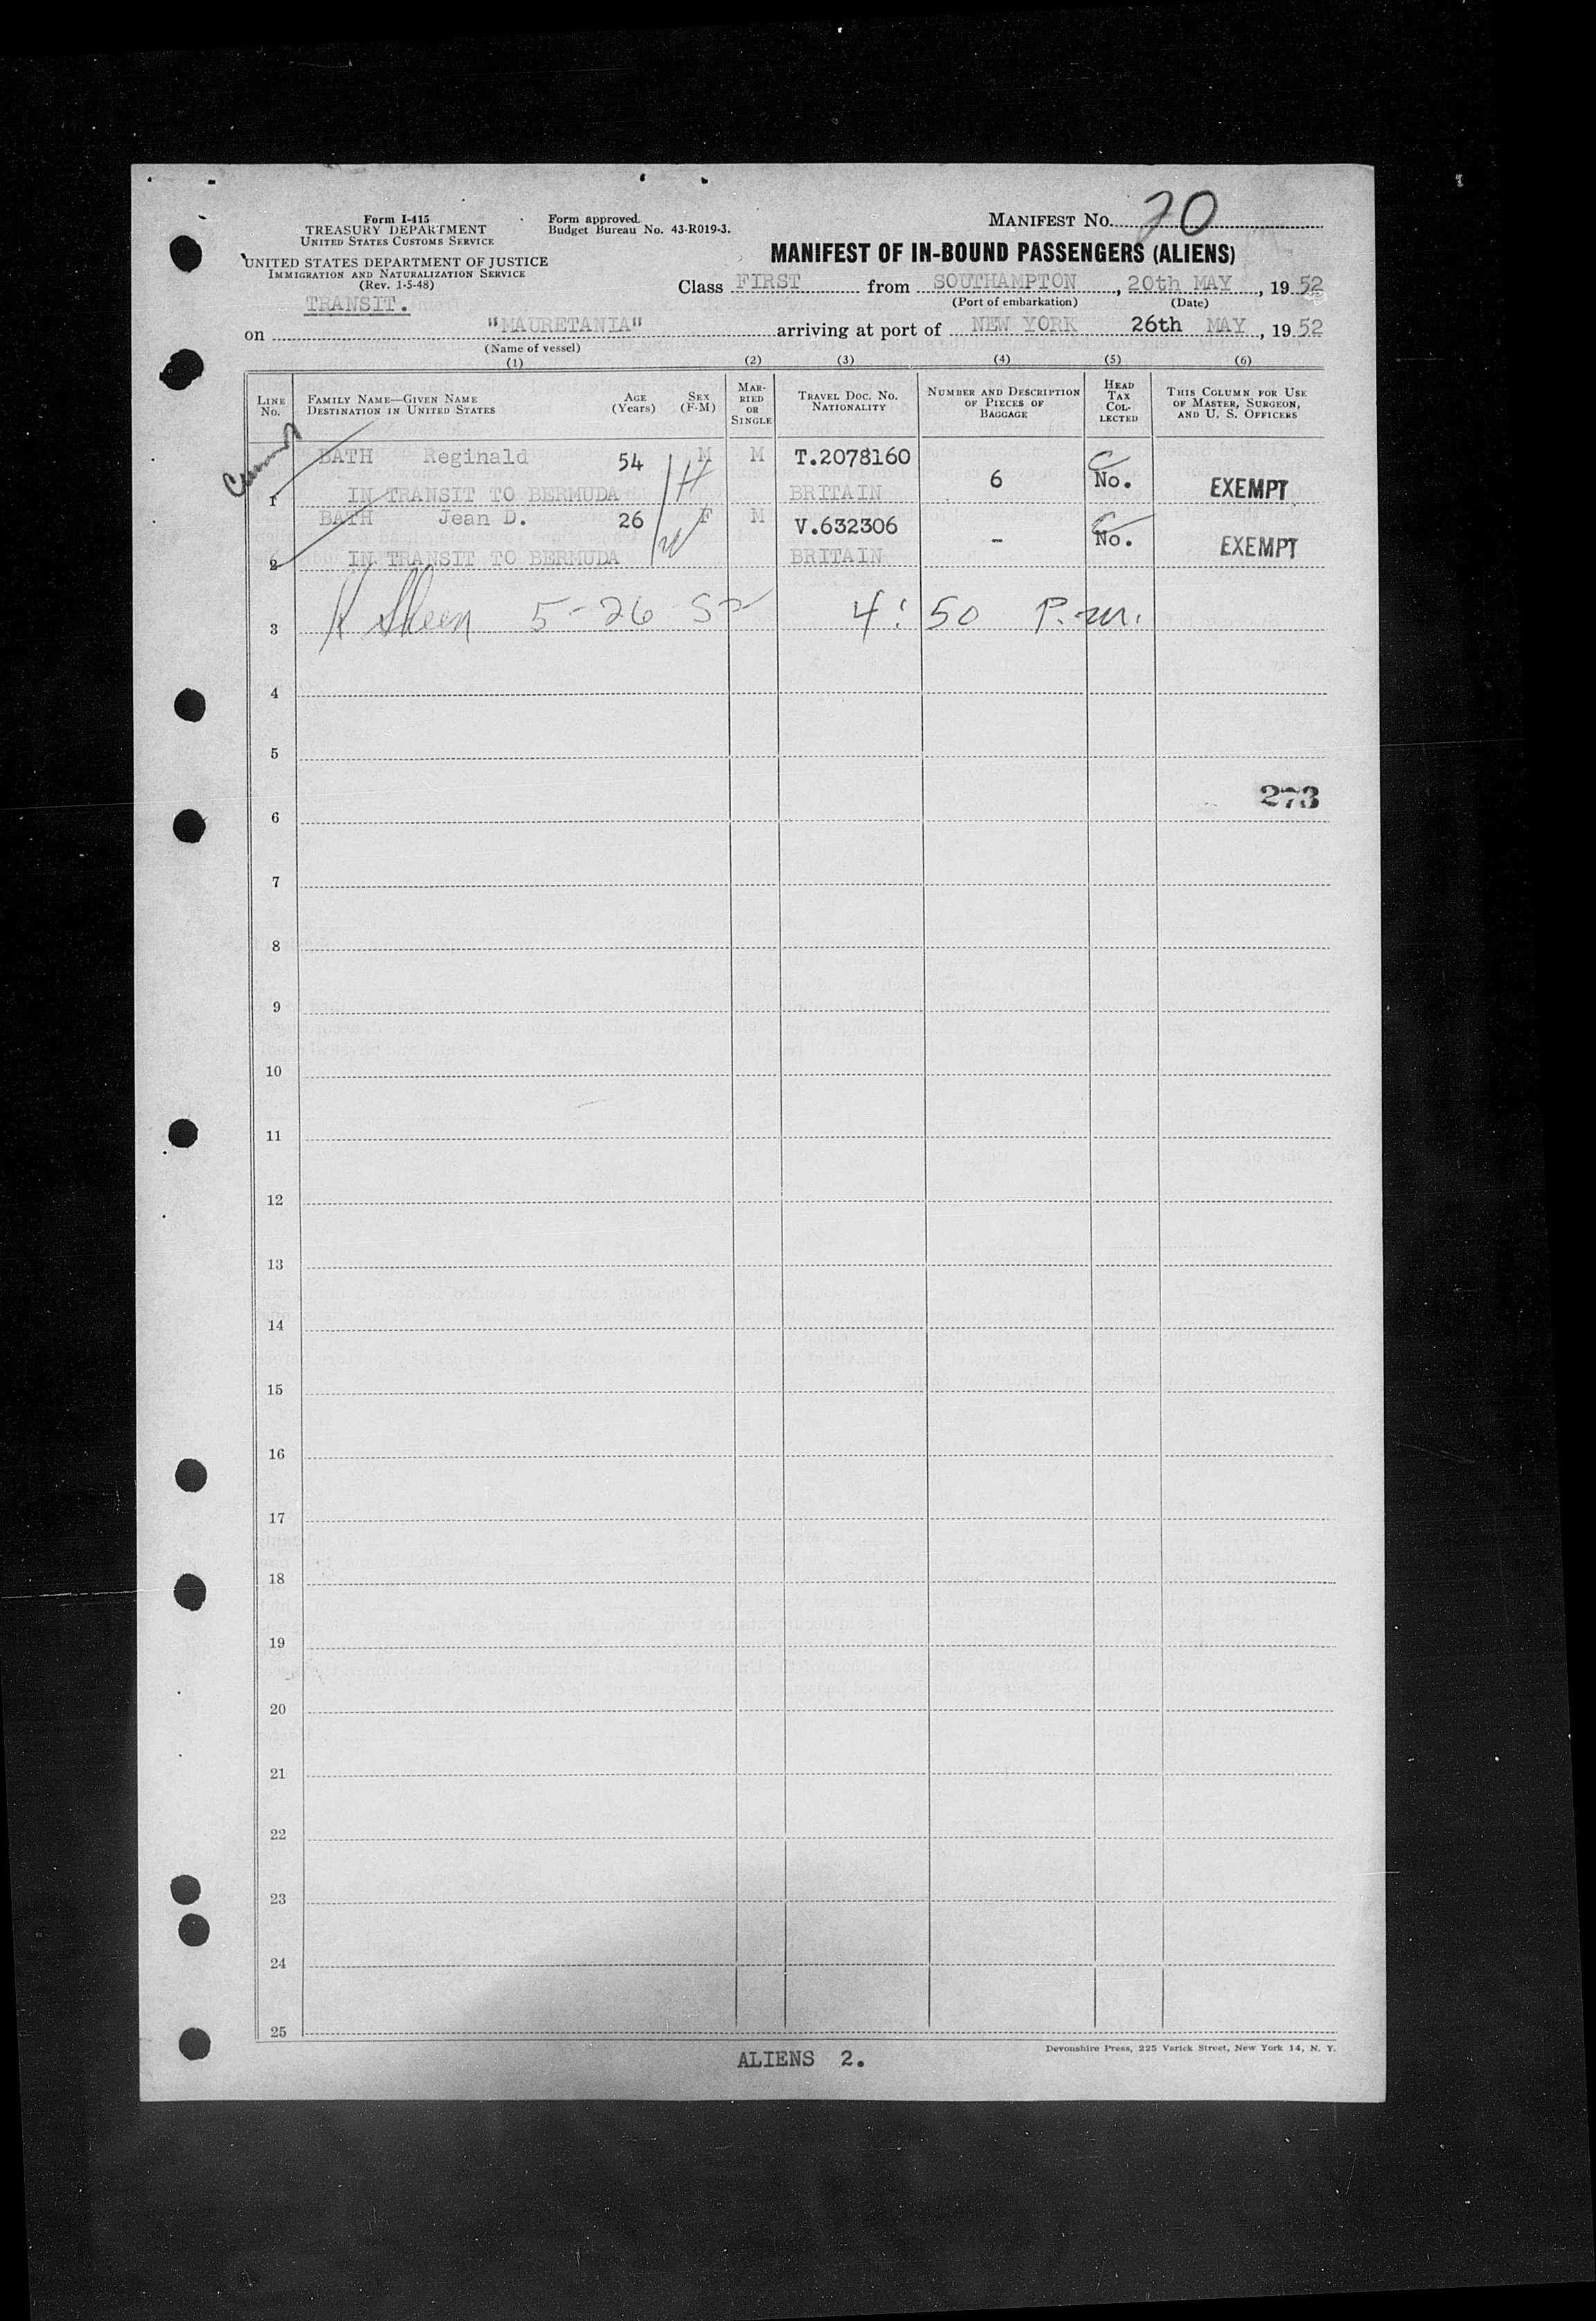 Form I-415
TREASURY DEPARTMENT
UNITED STATES CUSTOMS SERVICE
UNITED STATES DEPARTMENT OF JUSTICE
IMMIGRATION AND NATURALIZATION SERVICE
(Rev. 1-5-48)
TRANSIT.
Form approved.
Budget Bureau No. 43-R019-3.
MANIFEST NO. 20
MANIFEST OF IN-BOUND PASSENGERS (ALIENS)
Class FIRST from SOUTHAMPTON, 20th MAY, 1952
(Port of embarkation) (Date)
on "MAURETANIA" arriving at port of NEW YORK 26th MAY, 1952
(Name of vessel)
(1) (2) (3) (4) (5) (6)
LINE No. FAMILY NAME—GIVEN NAME DESTINATION IN UNITED STATES AGE (Years) SEX (F-M) MARRIED OR SINGLE TRAVEL DOC. NO. NATIONALITY NUMBER AND DESCRIPTION OF PIECES OF BAGGAGE HEAD TAX COLLECTED THIS COLUMN FOR USE OF MASTER, SURGEON, AND U. S. OFFICERS
BATH Reginald 54 M M T.2078160
1 IN TRANSIT TO BERMUDA H BRITAIN 6 No. EXEMPT
BATH Jean D. 26 F M V.632306
2 IN TRANSIT TO BERMUDA W BRITAIN - No. EXEMPT
3 5-26 52 4:50 P.m.
4
5
273
6
7
8
9
10
11
12
13
14
15
16
17
18
19
20
21
22
23
24
25
ALIENS 2.
Devonshire Press, 225 Varick Street, New York 14, N. Y.